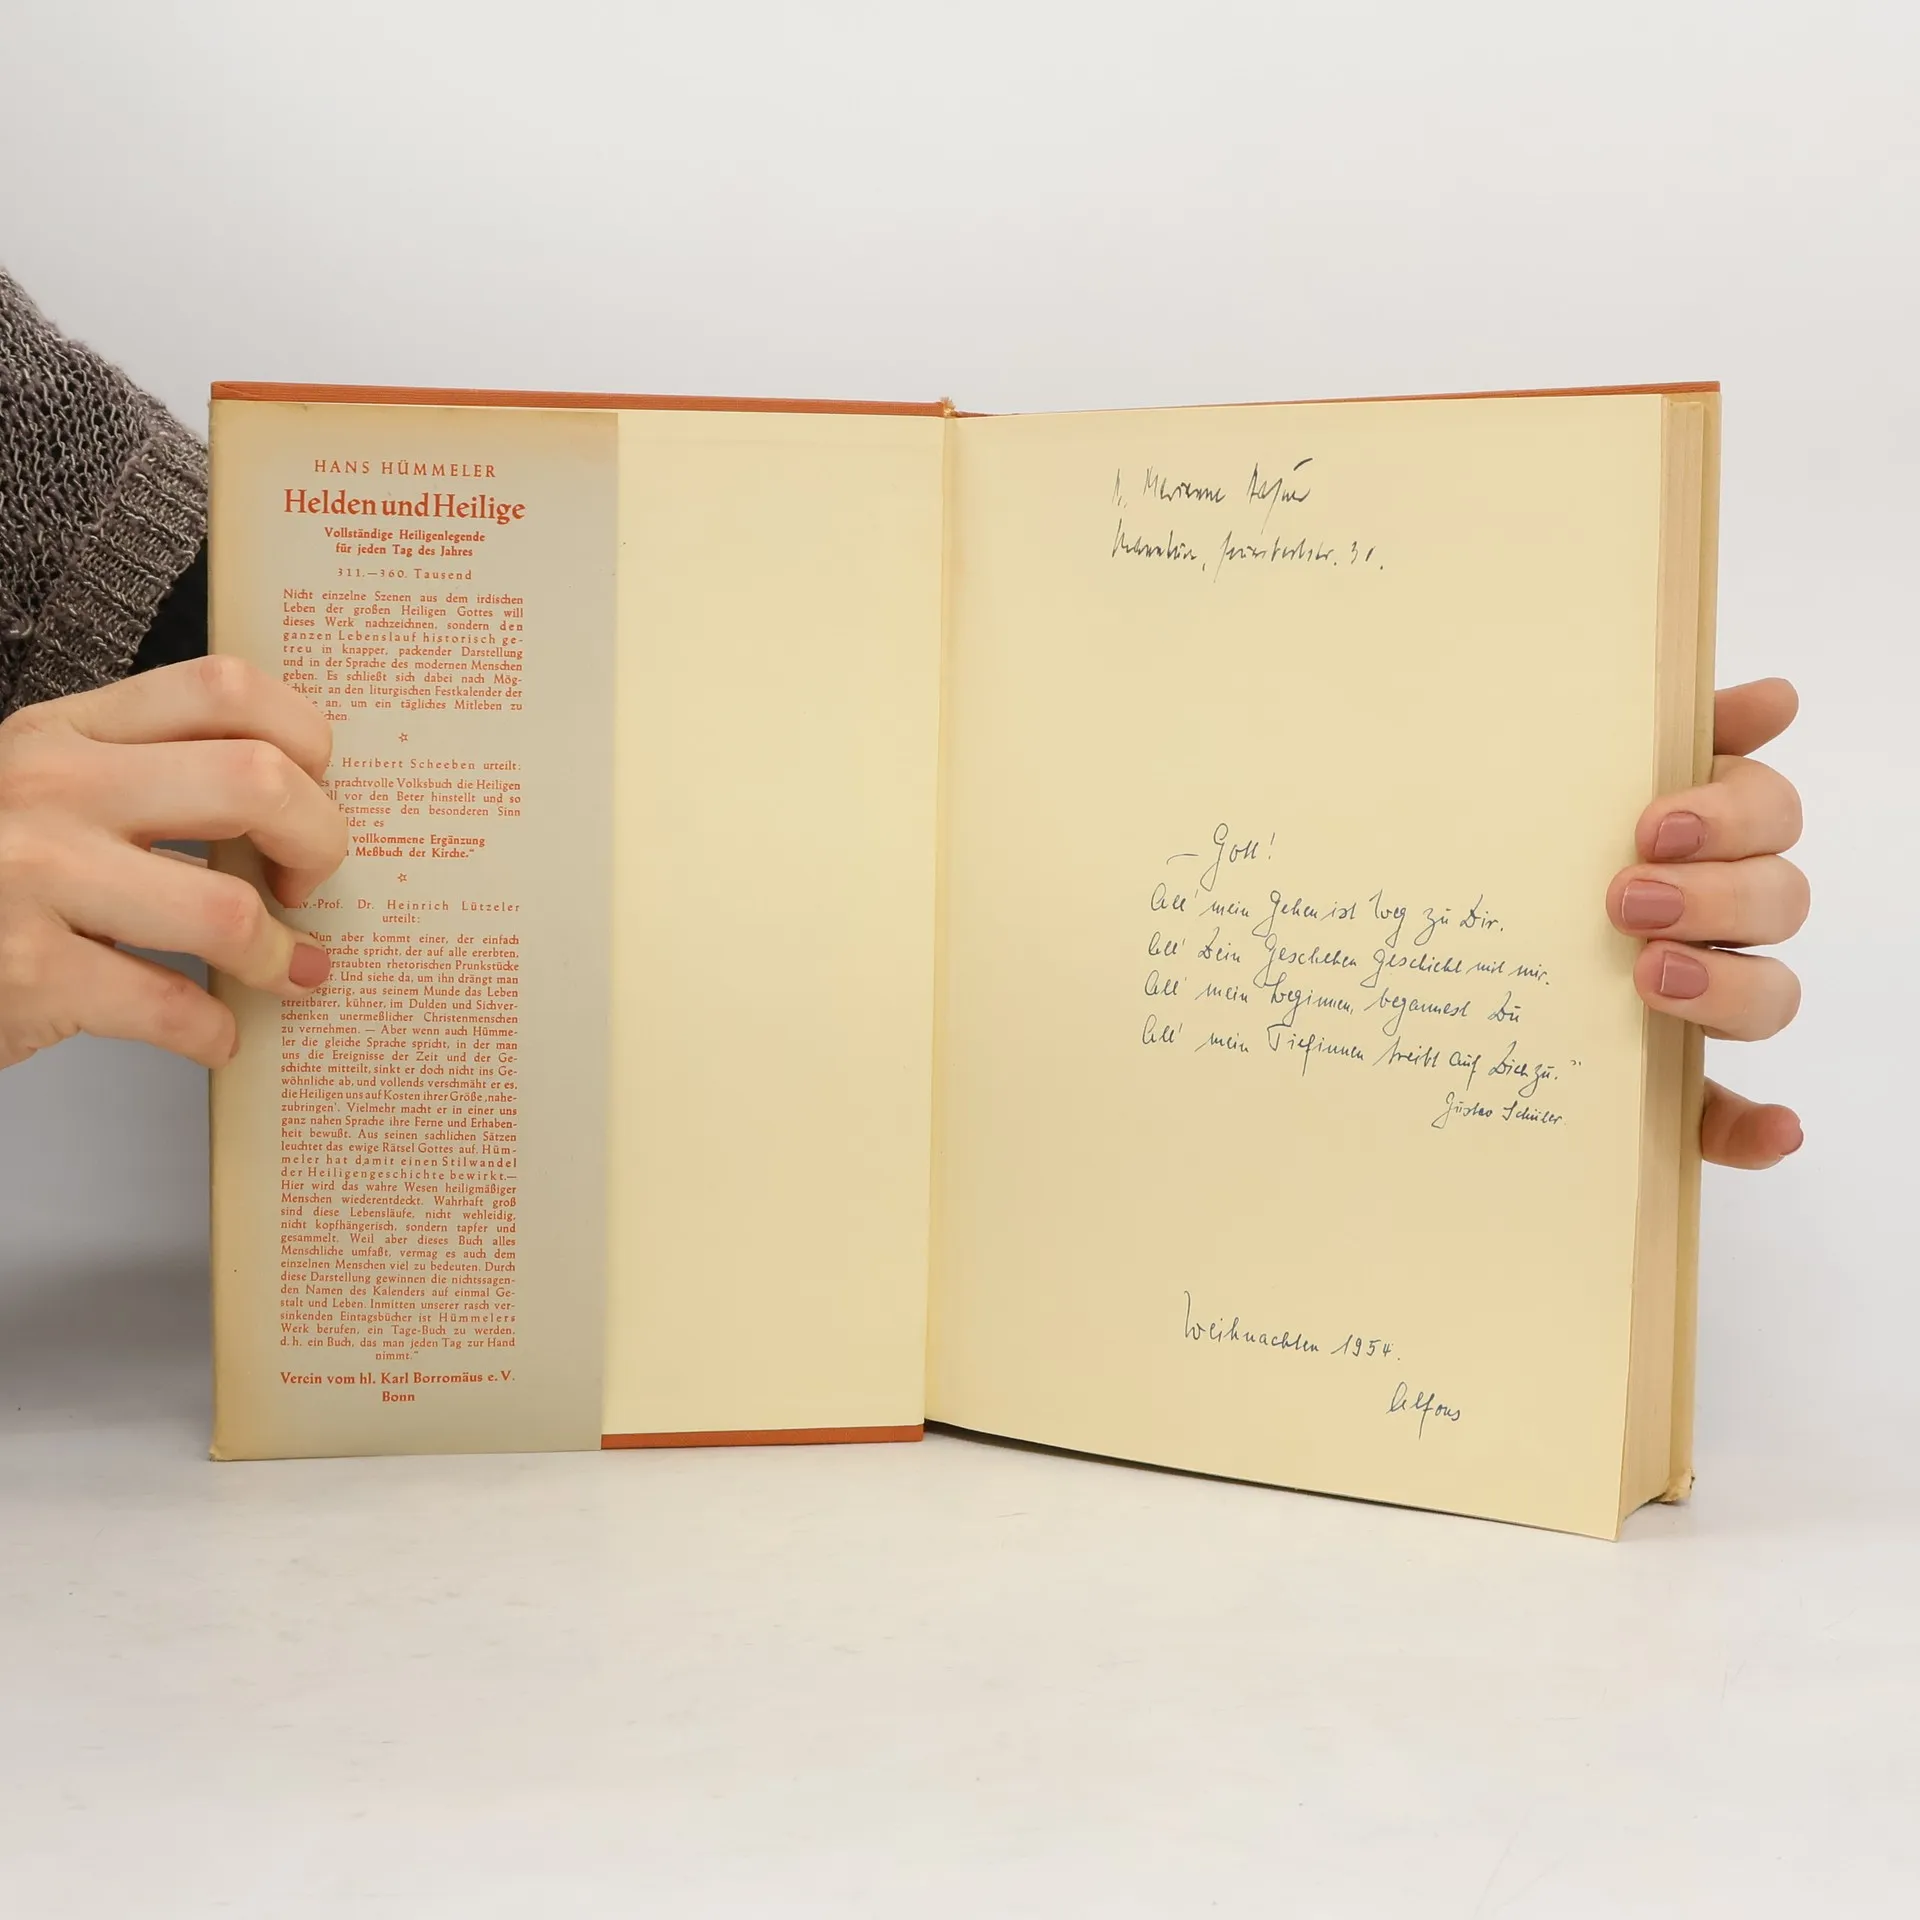 HANS HÜMMELER
Helden und Heilige
Vollständige Heiligenlegende
für jeden Tag des Jahres
311.—360. Tausend
Nicht einzelne Szenen aus dem irdischen
Leben der großen Heiligen Gottes will
dieses Werk nachzeichnen, sondern den
ganzen Lebenslauf historisch ge-
treu in knapper, packender Darstellung
und in der Sprache des modernen Menschen
geben. Es schließt sich dabei nach Mög-
an den liturgischen Festkalender der
an, um ein tägliches Mitleben zu
☆
Heribert Scheeben urteilt:
prachtvolle Volksbuch die Heiligen
vor den Beter hinstellt und so
Festmesse den besonderen Sinn
es
vollkommene Ergänzung
Meßbuch der Kirche."
☆
Prof. Dr. Heinrich Lützeler
urteilt:
Nun aber kommt einer, der einfach
Sprache spricht, der auf alle ererbten,
rhetorischen Prunkstücke
Und siehe da, um ihn drängt man
aus seinem Munde das Leben
streitbarer, kühner, im Dulden und Sichver-
schenken unermeßlicher Christenmenschen
zu vernehmen. — Aber wenn auch Hümme-
ler die gleiche Sprache spricht, in der man
uns die Ereignisse der Zeit und der Ge-
schichte mitteilt, sinkt er doch nicht ins Ge-
wöhnliche ab, und vollends verschmäht er es,
die Heiligen uns auf Kosten ihrer Größe ‚nahe-
zubringen'. Vielmehr macht er in einer uns
ganz nahen Sprache ihre Ferne und Erhaben-
heit bewußt. Aus seinen sachlichen Sätzen
leuchtet das ewige Rätsel Gottes auf. Hüm-
meler hat damit einen Stilwandel
der Heiligengeschichte bewirkt.—
Hier wird das wahre Wesen heiligmäßiger
Menschen wiederentdeckt. Wahrhaft groß
sind diese Lebensläufe, nicht wehleidig,
nicht kopfhängerisch, sondern tapfer und
gesammelt. Weil aber dieses Buch alles
Menschliche umfaßt, vermag es auch dem
einzelnen Menschen viel zu bedeuten. Durch
diese Darstellung gewinnen die nichtssagen-
den Namen des Kalenders auf einmal Ge-
stalt und Leben. Inmitten unserer rasch ver-
sinkenden Eintagsbücher ist Hümmelers
Werk berufen, ein Tage-Buch zu werden,
d. h. ein Buch, das man jeden Tag zur Hand
nimmt."
Verein vom hl. Karl Borromäus e. V.
Bonn
Marianne
30.
— Gott!
All' mein Gehen ist Weg zu Dir.
All' Dein Geschehen geschieht mit mir.
All' mein Beginnen, begannest Du
All' mein Tiefinnen treibt auf Dich zu."
Gustav Schüler
Weihnachten 1954.
Alfons